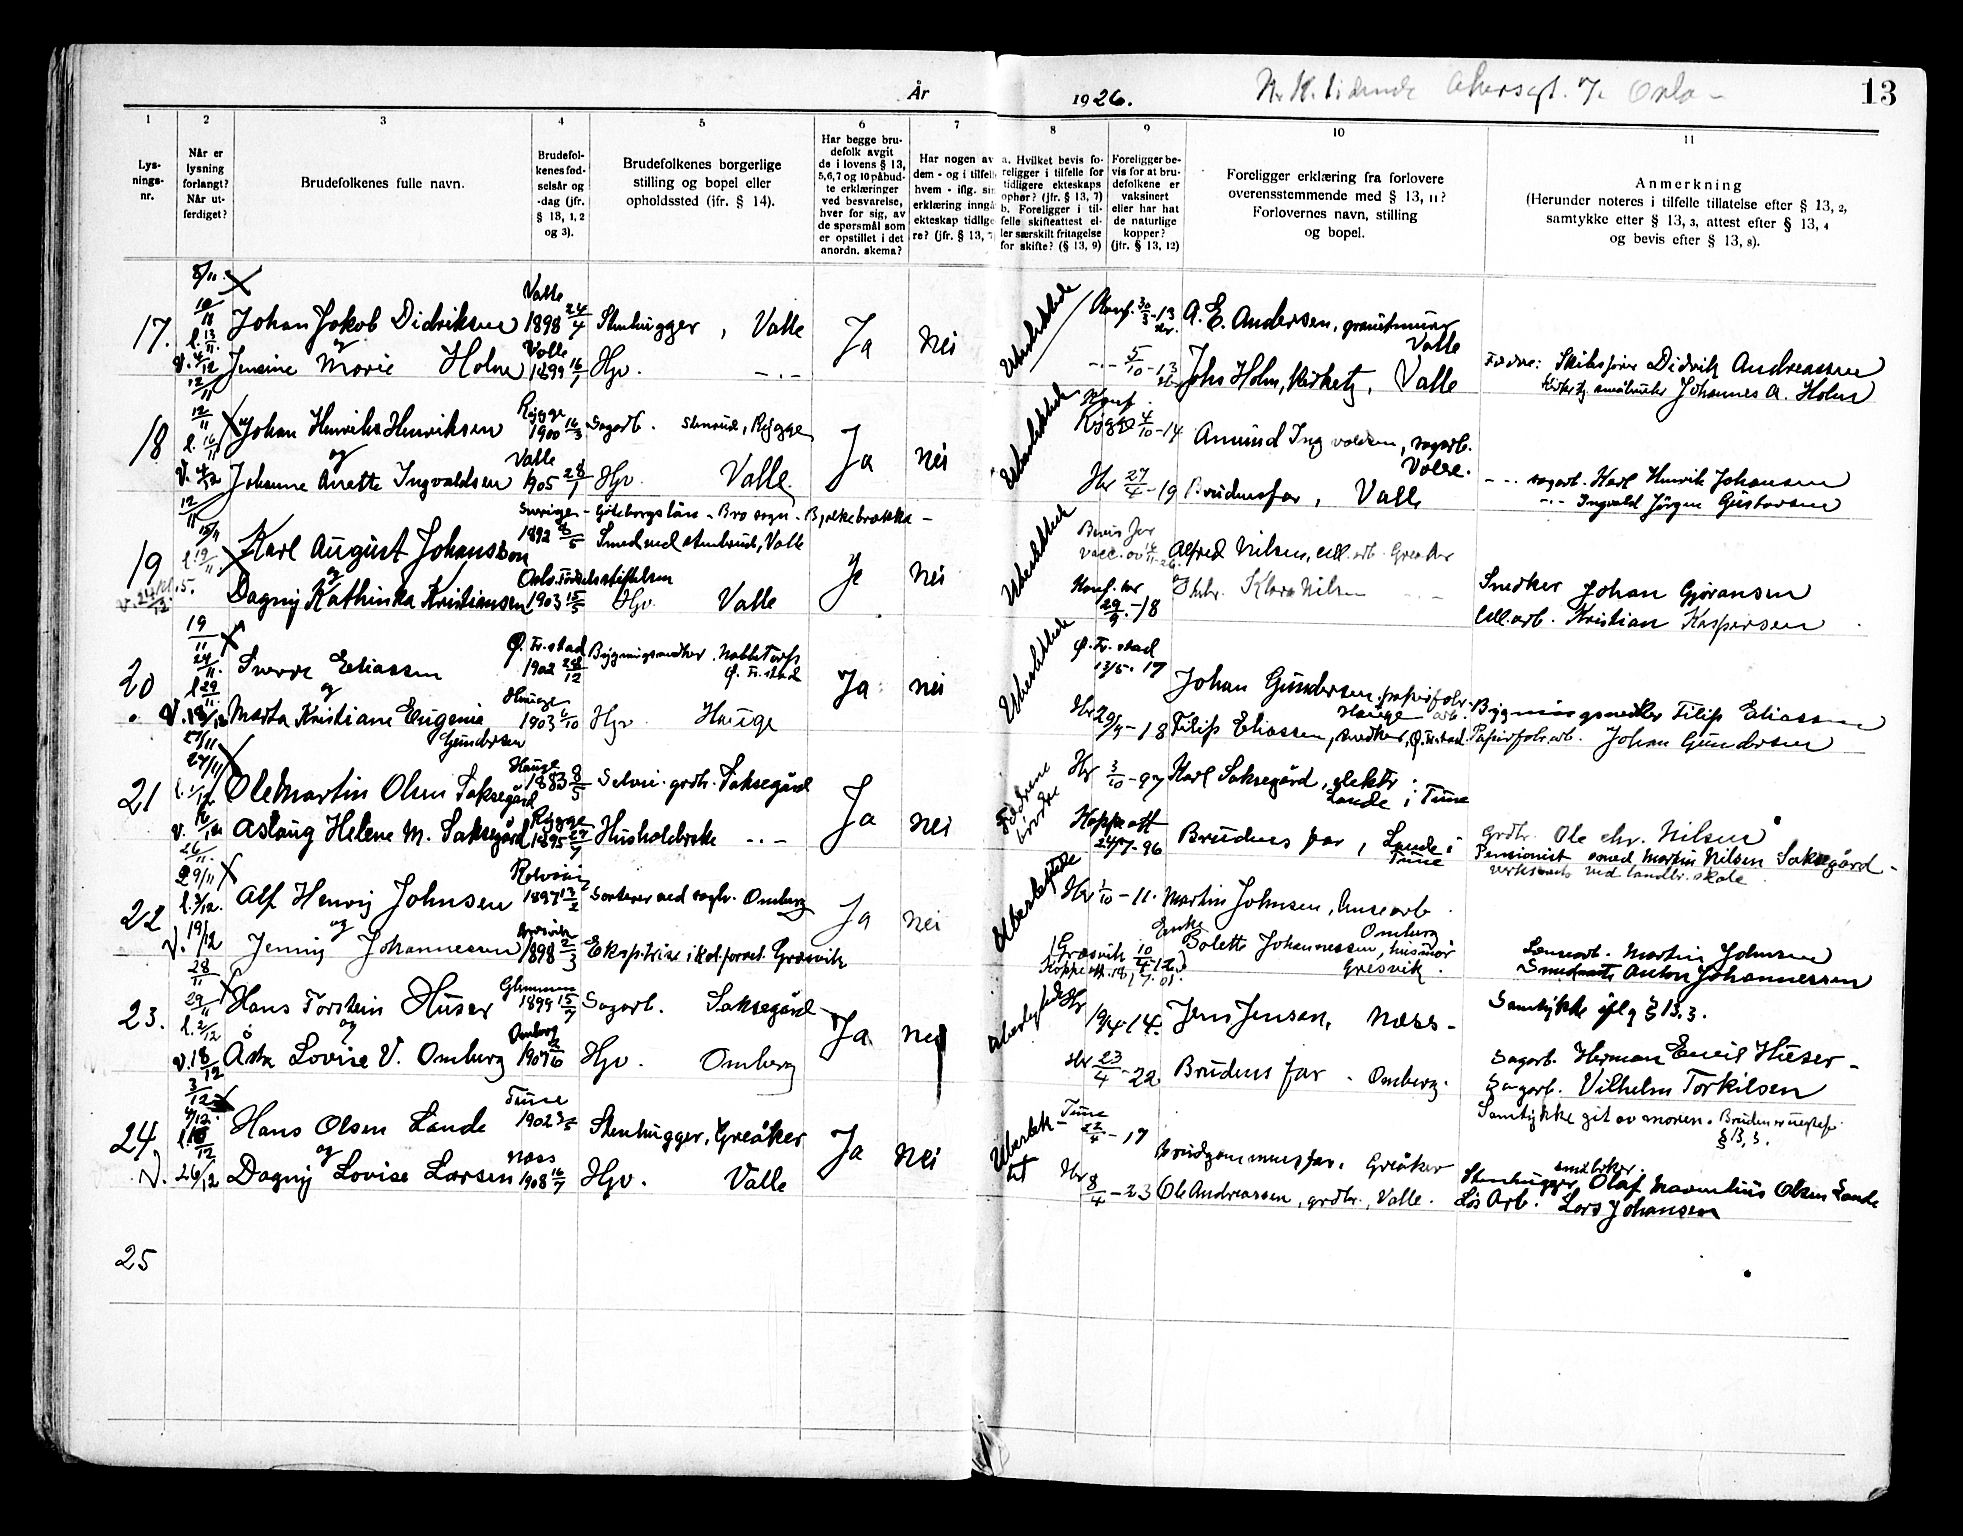 År 1926.
Akersgt. 7 Oslo -
13
1 2 3 4 5 6 7 8 9 10 11
Lys-
nings-
nr.
Når er
lysning
forlangt?
Når ut-
ferdiget?
Brudefolkenes fulle navn.
Brudefol-
kenes fød-
selsår og
-dag (jfr.
§ 13, 1, 2
og 3).
Brudefolkenes borgerlige
stilling og bopel eller
opholdssted (jfr. § 14).
Har begge bru-
defolk avgit
de i lovens § 13,
5,6,7 og 10 påbud-
te erklæringer
ved besvarelse,
hver for sig, av
de spørsmål som
er opstillet i det
anordn. skema?
Har nogen av
dem - og i tilfell
hvem - iflg. sin
erklæring inngå
ekteskap tidlige
re? (jfr. § 13, 7
a. Hvilket bevis fo-
religger i tilfelle for
tidligere ekteskaps
ophør? (jfr. § 13, 7)
b. Foreligger i til-
felle skifteattest el-
ler særskilt fritagelse
for skifte? (§ 13, 9)
Foreligger be-
vis for at bru-
defolkene er
vaksinert
eller har hat
de naturlige
kopper?
(jfr. § 13, 12)
Foreligger erklæring fra forlovere
overensstemmende med § 13, 11?
Forlovernes navn, stilling
og bopel.
Anmerkning
(Herunder noteres i tilfelle tillatelse efter § 13, 2,
samtykke efter § 13, 3, attest efter § 13, 4
og bevis efter § 13, 8).
17. 8/11 10/11 l. 13/11 V. 4/12
Valle
Johan Jakob Didriksen 1898 24/4 Stenhugger, Valle Ja nei Ubeslektede Konf. 30/3-13 A. E. Andersen, granitmurer
Valle
og Valle
Jensine Marie Holm 1899 16/1 Hjv. -.- 5/10-13 Johs Holm, kirketj. Valle Fedre: Skibsfører Didrik Andreassen
Kirketj. småbruker Johannes A. Holm
18 12/11 12/11 l. 16/11 V. 4/12
Rygge
Johan Henriks Henriksen 1900 16/3 Sagarb. Stenrud, Rygge Ja nei Ubeslektede Konf. Rygge 4/10-14 Amund Ingvaldsen, sagarb.
Valle.
og Valle
Johanne Anette Ingvaldsen 1905 28/1 Hjv. Valle. Hr 27/4-19 Brudens far, Valle -.- sagarb. Karl Henrik Johansen
-.- Ingvald Jørgen Gustavsen
19 12/11 15/11 l. 19/11 V. 24/12 kl. 5.
Sverige - Göteborgs län - Bro sogn - Bjelkebrakka -
Karl August Johansson 1892 Smed ved Ambrud, Valle Ja nei Ubeslektede Bevis for
vacc. av 16/11-26. Alfred Nilsen, cell.arb. Greåker
og Oslo. Fødselsstiftelsen
Dagny Kathinka Kristiansen 1903 15/5 Hjv. Valle Konf. hr 29/9-18 Klara Nilsen -.- Snedker Johan Gjøransen
Cell.arb. Kristian Kaspersen
20 19/11 24/11 l. 29/11 V. 18/12
Ø. Fr.stad
Sverre Eliassen 1902 28/12 Bygningssnedker Nabbetorp
Ø. Fr.stad Ja nei Ubeslektede Ø. Fr.stad 13/5-17 Johan Gundersen papirfabr.
Hauge arb.
og Hauge
Marta Kristiane Eugenie 1903 6/10 Hjv. Hauge Hr 29/9-18 Filip Eliassen, snedker, Ø. Fr.stad. Bygningssnedker Filip Eliassen
Gundersen Papirfabr.arb. Johan Gundersen
21 27/11 27/11 l. 1/12 V.
Hauge
Ole Martin Olsen Saksegård 1883 8/5 Selvei. grdbr. Saksegård Ja nei Fedrene brødre Hr 3/10-97 Karl Saksegård, elektr.
Lande i Tune
Rygge
Aslaug Helene M. Saksegård 1895 Husholderske -.- Koppeatt 24/7-96 Brudens far, Lande i
Tune Grdbr. Ole Chr. Nilsen
Pensionist Martin Nilsen Saksegård -
ved landbr. skole
22 26/11 29/11 l. 3/12. V. 19/12
Rolvsøy
Alf Henry Johnsen 1897 13/2 Sorterer ved sagbr. Omberg Ja nei Hr 1/10-11. Martin Johnsen,
Omberg
og Gresvik
Jenny Johannessen 1898 2/3 Ekspeditrise i Gresvik Gresvik 10/4-12 Enke Bolette Johannessen, husmor
Gresvik. Martin Johnsen
Koppeatt. Anton Johannessen
23. 28/11 29/11 l. 2/12 V. 18/12
Glemmen
Hans Torstein Huser 1899 15/7 Sagarb. Saksegård Ja nei Hr 19/4-14. Jens Jensen, Næss - Samtykke iflg § 13, 3.
og Omberg
Åsta Lovise V. Omberg 1907 Hjv. Omberg Hr 23/4-22 Brudens far - Omberg. Sagarb. Herman Emil Huser -
Sagarb. Vilhelm Torkilsen
24. 3/12 4/12. V. 26/12
Tune
Hans Olsen Lande 1902 Stenhugger, Greåker Ja nei Ubeslektet Tune 22/4-17 brudgommens far. Greåker Samtykke git av moren.
§ 13, 3.
og Næss
Dagny Lovise Larsen 1908 16/7 Hjv. Valle Hr 8/4-23 Ole Andreassen, grdbr., Valle. Stenhugger småbruker. Olaf Olsen Lande
Løs Arb. Lars Johansen
25